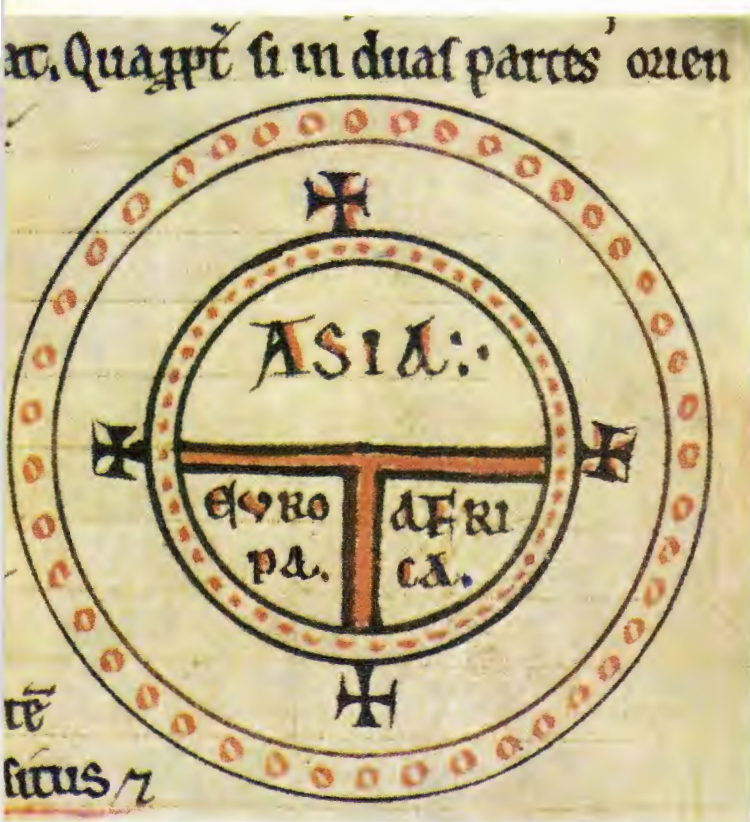 at. Quaꝓpt̃ si in duas partes orien
ASIA
EURO
PA.
AFRI
CA.
tē
situs ⁊